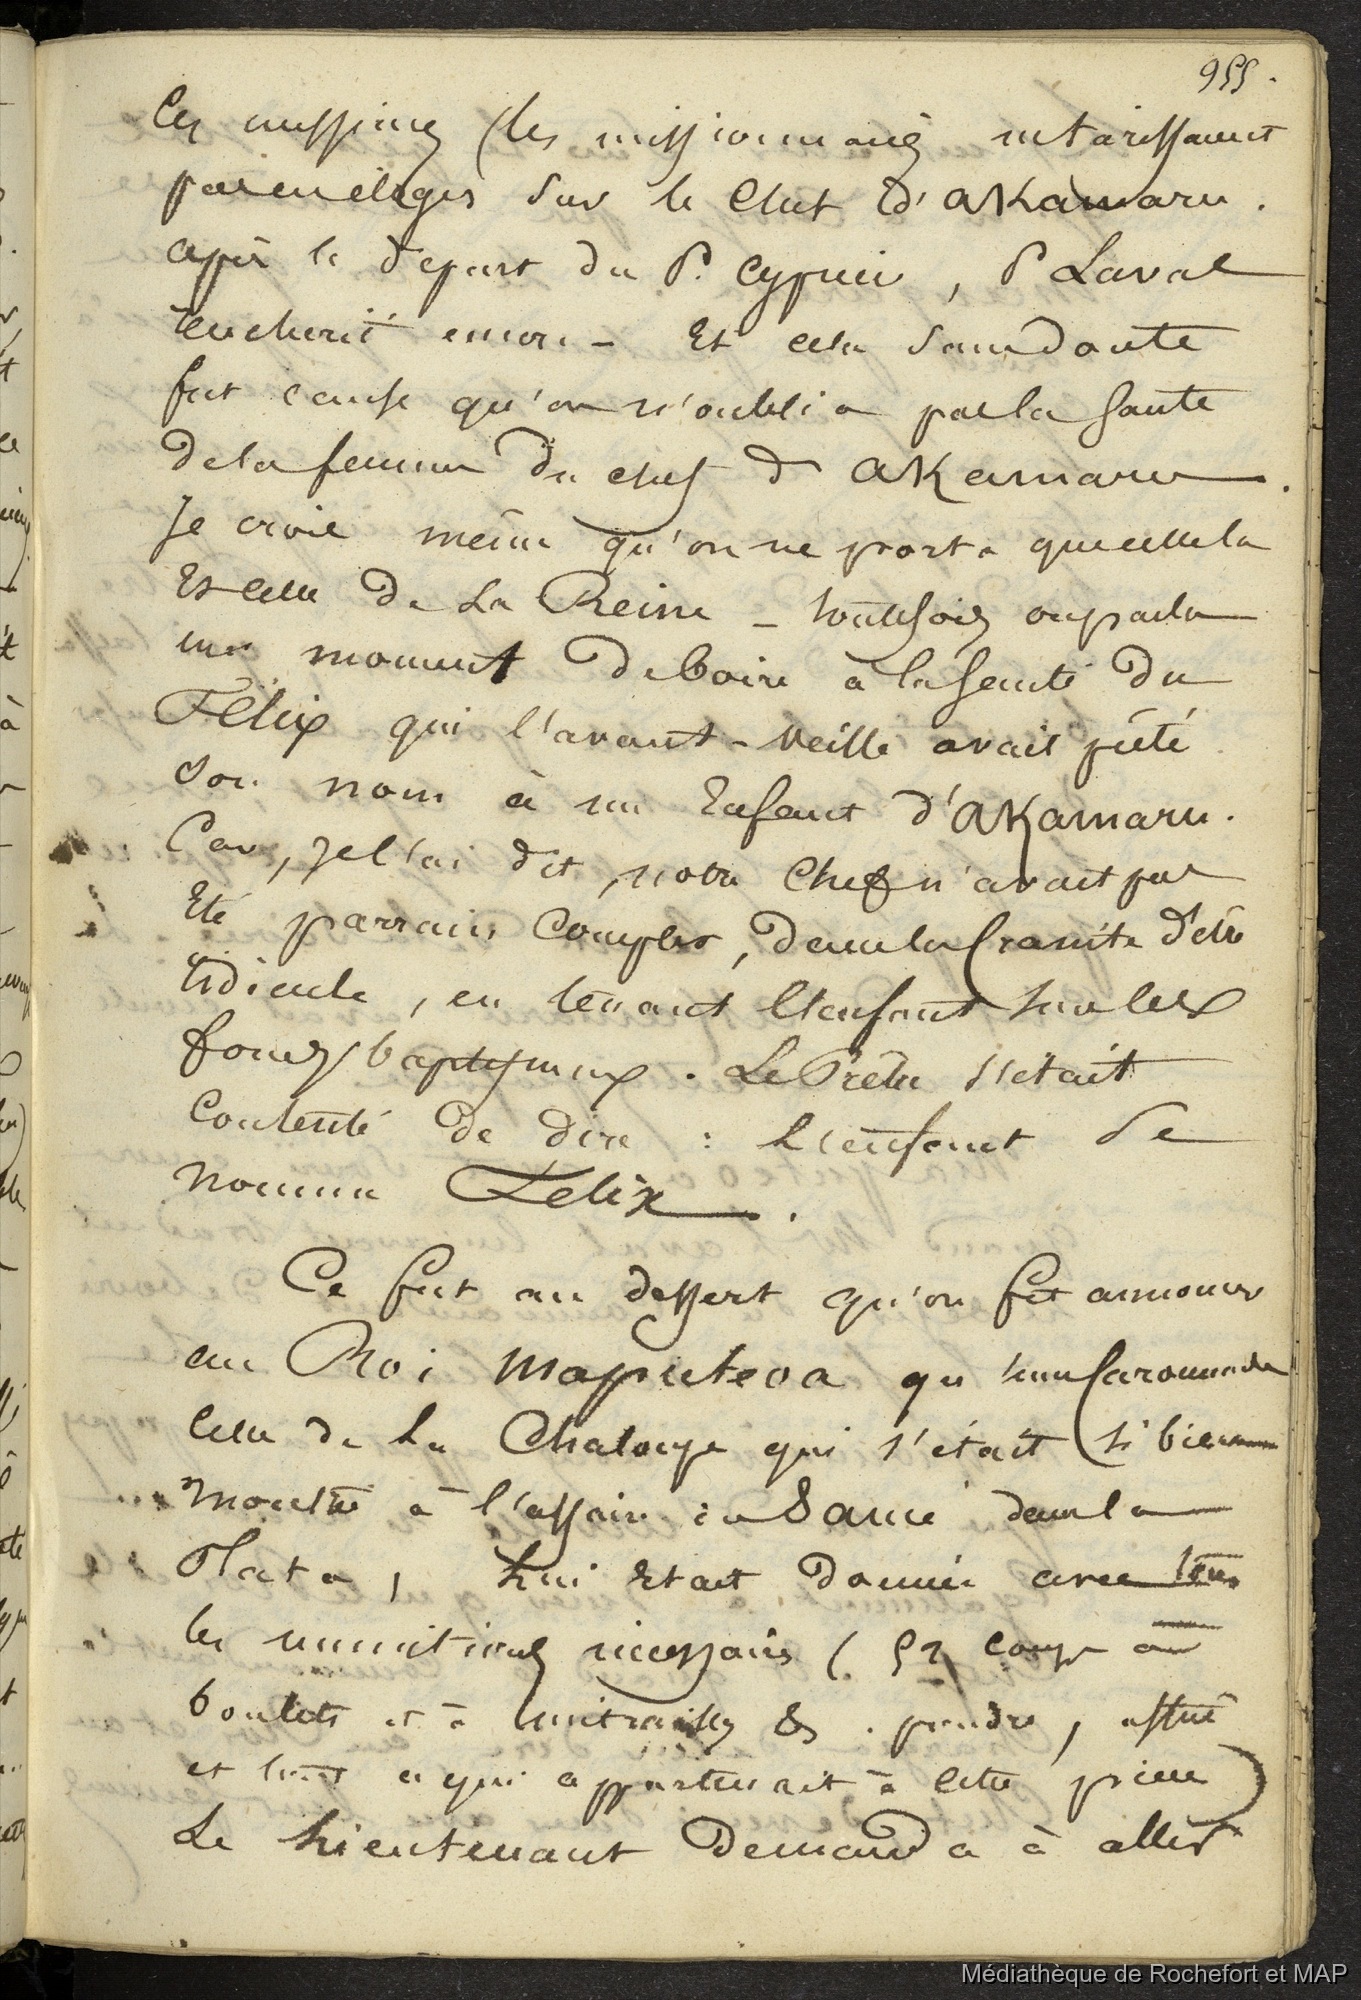 955.
(les missionnaires ne tarissaient
pas en éloges sur le Chef d'Akamaru.
après le départ du P. Cyprien, P Laval
enchérit encore - Et cela sans doute
fut cause qu'on n'oublia pas la santé
de la femme du chef d'Akamaru.
Je crois même qu'on ne porta que celle la
Et celle de La Reine - toutefois on parla
un moment de boire à la santé du
Félix qui l'avant-veille avait prêté
son nom à un Enfant d'Akamaru.
Car, je l'ai dit, notre Chef n'avait pas
Eté parrain complet, dans la crainte d'être
ridicule, en tenant l'enfant sur les
fonds baptismaux. Le Prêtre s'était
contenté de dire : L'enfant se
nomme Félix.
Ce fut au dessert qu'on fit annoncer
au Roi Maputeoa qu'une caronnade
celle de La Chaloupe qui s'était si bien
montrée à l'affaire de dans la
Plata, lui était donnée avec
les munitions nécessaires (52 coups à
boulets et à mitrailles & . poudre, affût
et tout ce qui appartenait à cette pièce)
Le Lieutenant demanda à aller
Médiathèque de Rochefort et MAP